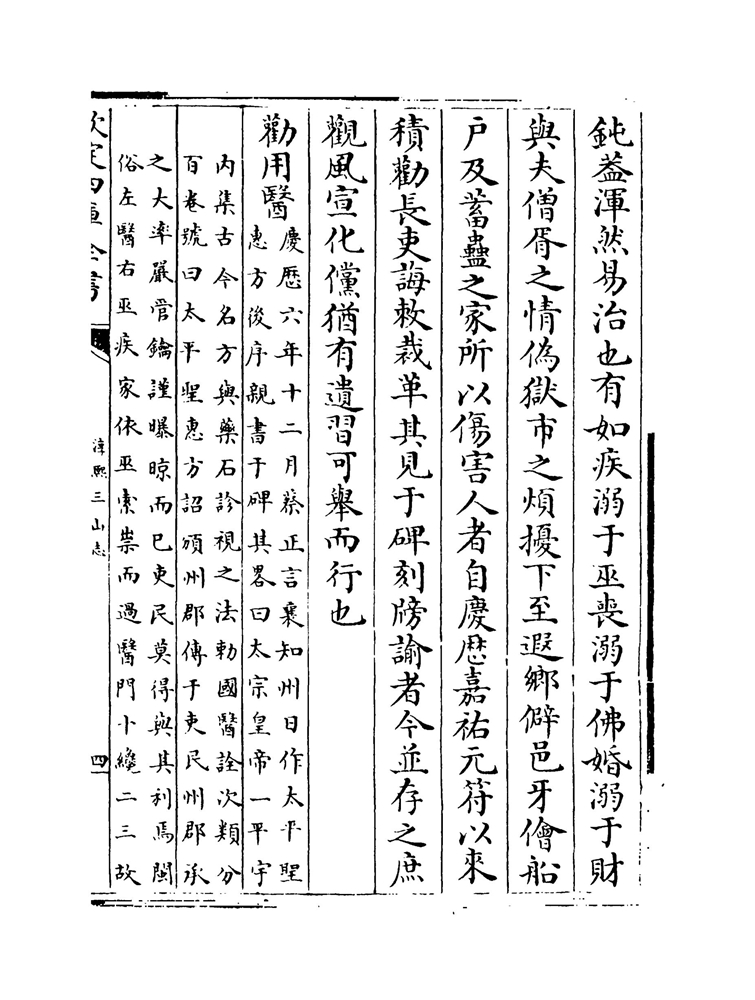 鈍葢渾然易治也有如疾溺于巫喪溺于佛婚溺于財
與夫僧胥之情偽獄市之煩擾下至遐鄉僻邑牙儈船
戸及蓄蠱之家所以傷害人者自慶厯嘉祐元符以來
積勸長吏誨敕裁革其見于碑刻牓諭者今並存之庶
觀風宣化儻猶有遺習可舉而行也
勸用醫
慶厯六年十二月蔡正言襄知州日作太平聖
惠方後序親書于碑其畧曰太宗皇帝一平宇
内集古今名方與藥石診視之法勅國醫詮次類分
百卷號曰太平聖惠方詔頒州郡傳于吏民州郡承
之大率嚴管鑰謹曝晾而已吏民莫得與其利焉閩
俗左醫右巫疾家依巫索祟而過醫門十纔二三故
欽定四庫全書
淳熙三山志
四